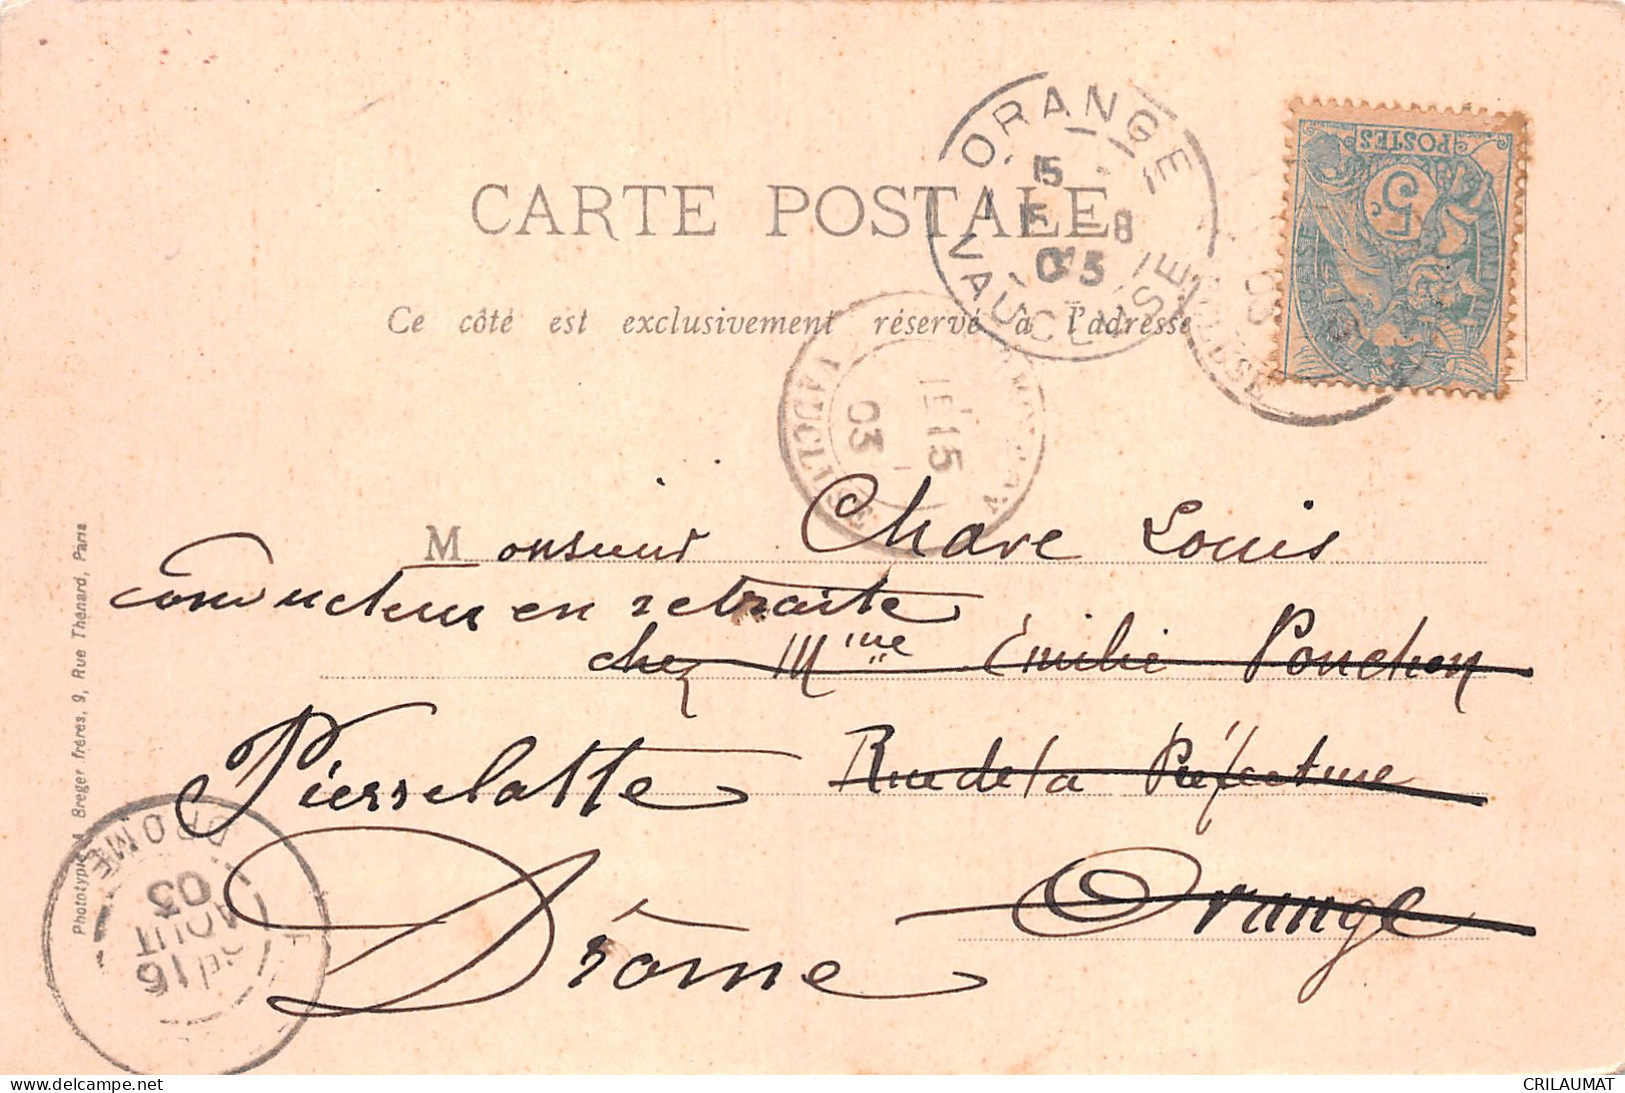 CARTE POSTALE
Ce côté est exclusivement réservé à l'adresse
ORANGE
15
15 -8
03
VAUCLUSE
POSTES
5c
VAUCLUSE
15
03
Monsieur Chave Louis
conducteur en retraite
chez Mme Emilie Ponchon
Pierrelatte
Rue de la Préfecture
Drôme
Orange
DROME
16
AOUT
03
Phototypie A Breger frères, 9, Rue Thénard, Paris
www.delcampe.net
CRILAUMAT